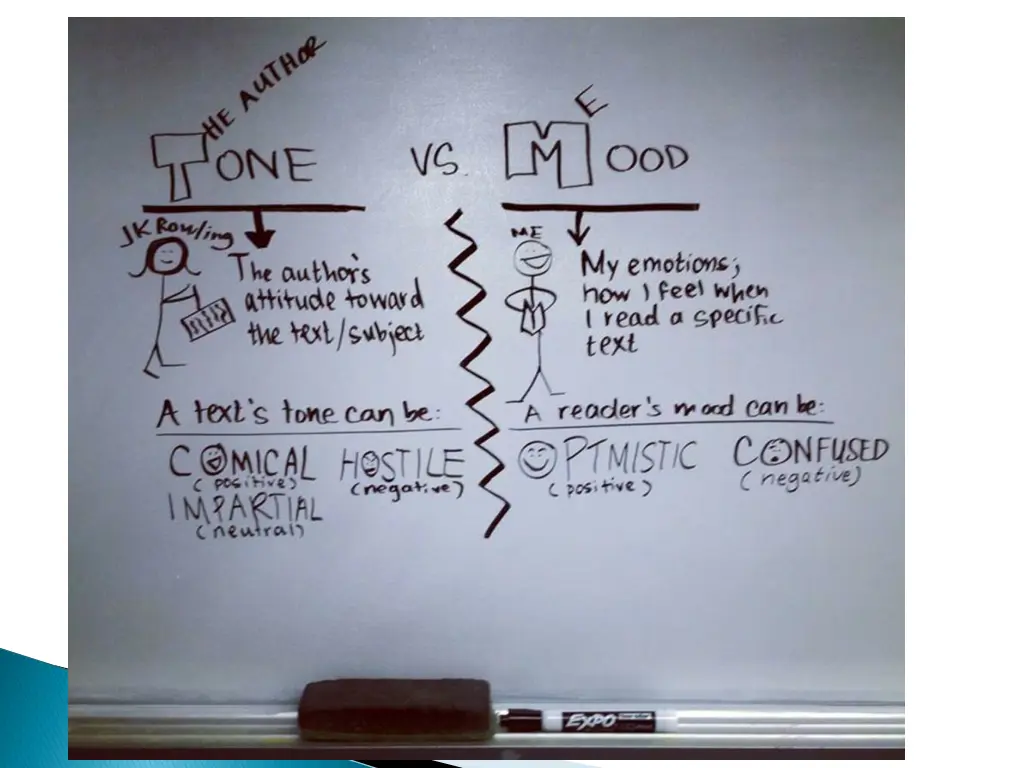 THE AUTHOR
TONE
VS.
ME
MOOD
JK Rowling
The author's
attitude toward
the text/subject
ME
My emotions;
how I feel when
I read a specific
text
M
A text's tone can be:
COMICAL
(positive)
HOSTILE
(negative)
IMPARTIAL
(neutral)
A reader's mood can be:
OPTMISTIC
(positive)
CONFUSED
(negative)
EXPO